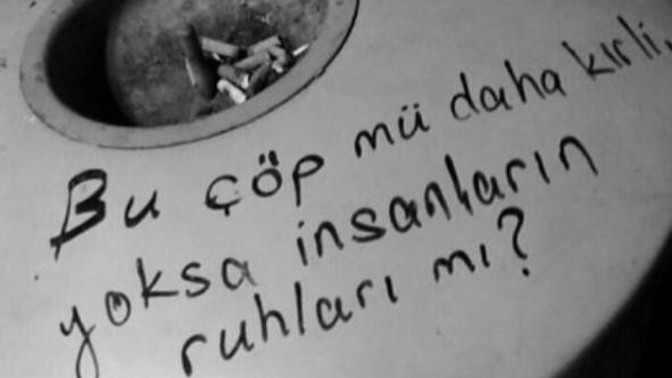 Bu çöp mü daha kirli,
yoksa insanların
ruhları mı?